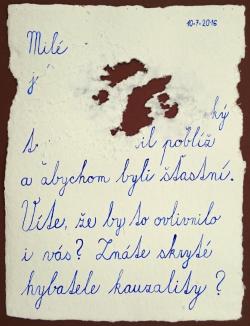 10-7-2016
Milé
j
ký
t il poblíž
a abychom byli šťastní.
Víte, že by to ovlivnilo
i vás? Znáte skryté
hybatele kauzality?